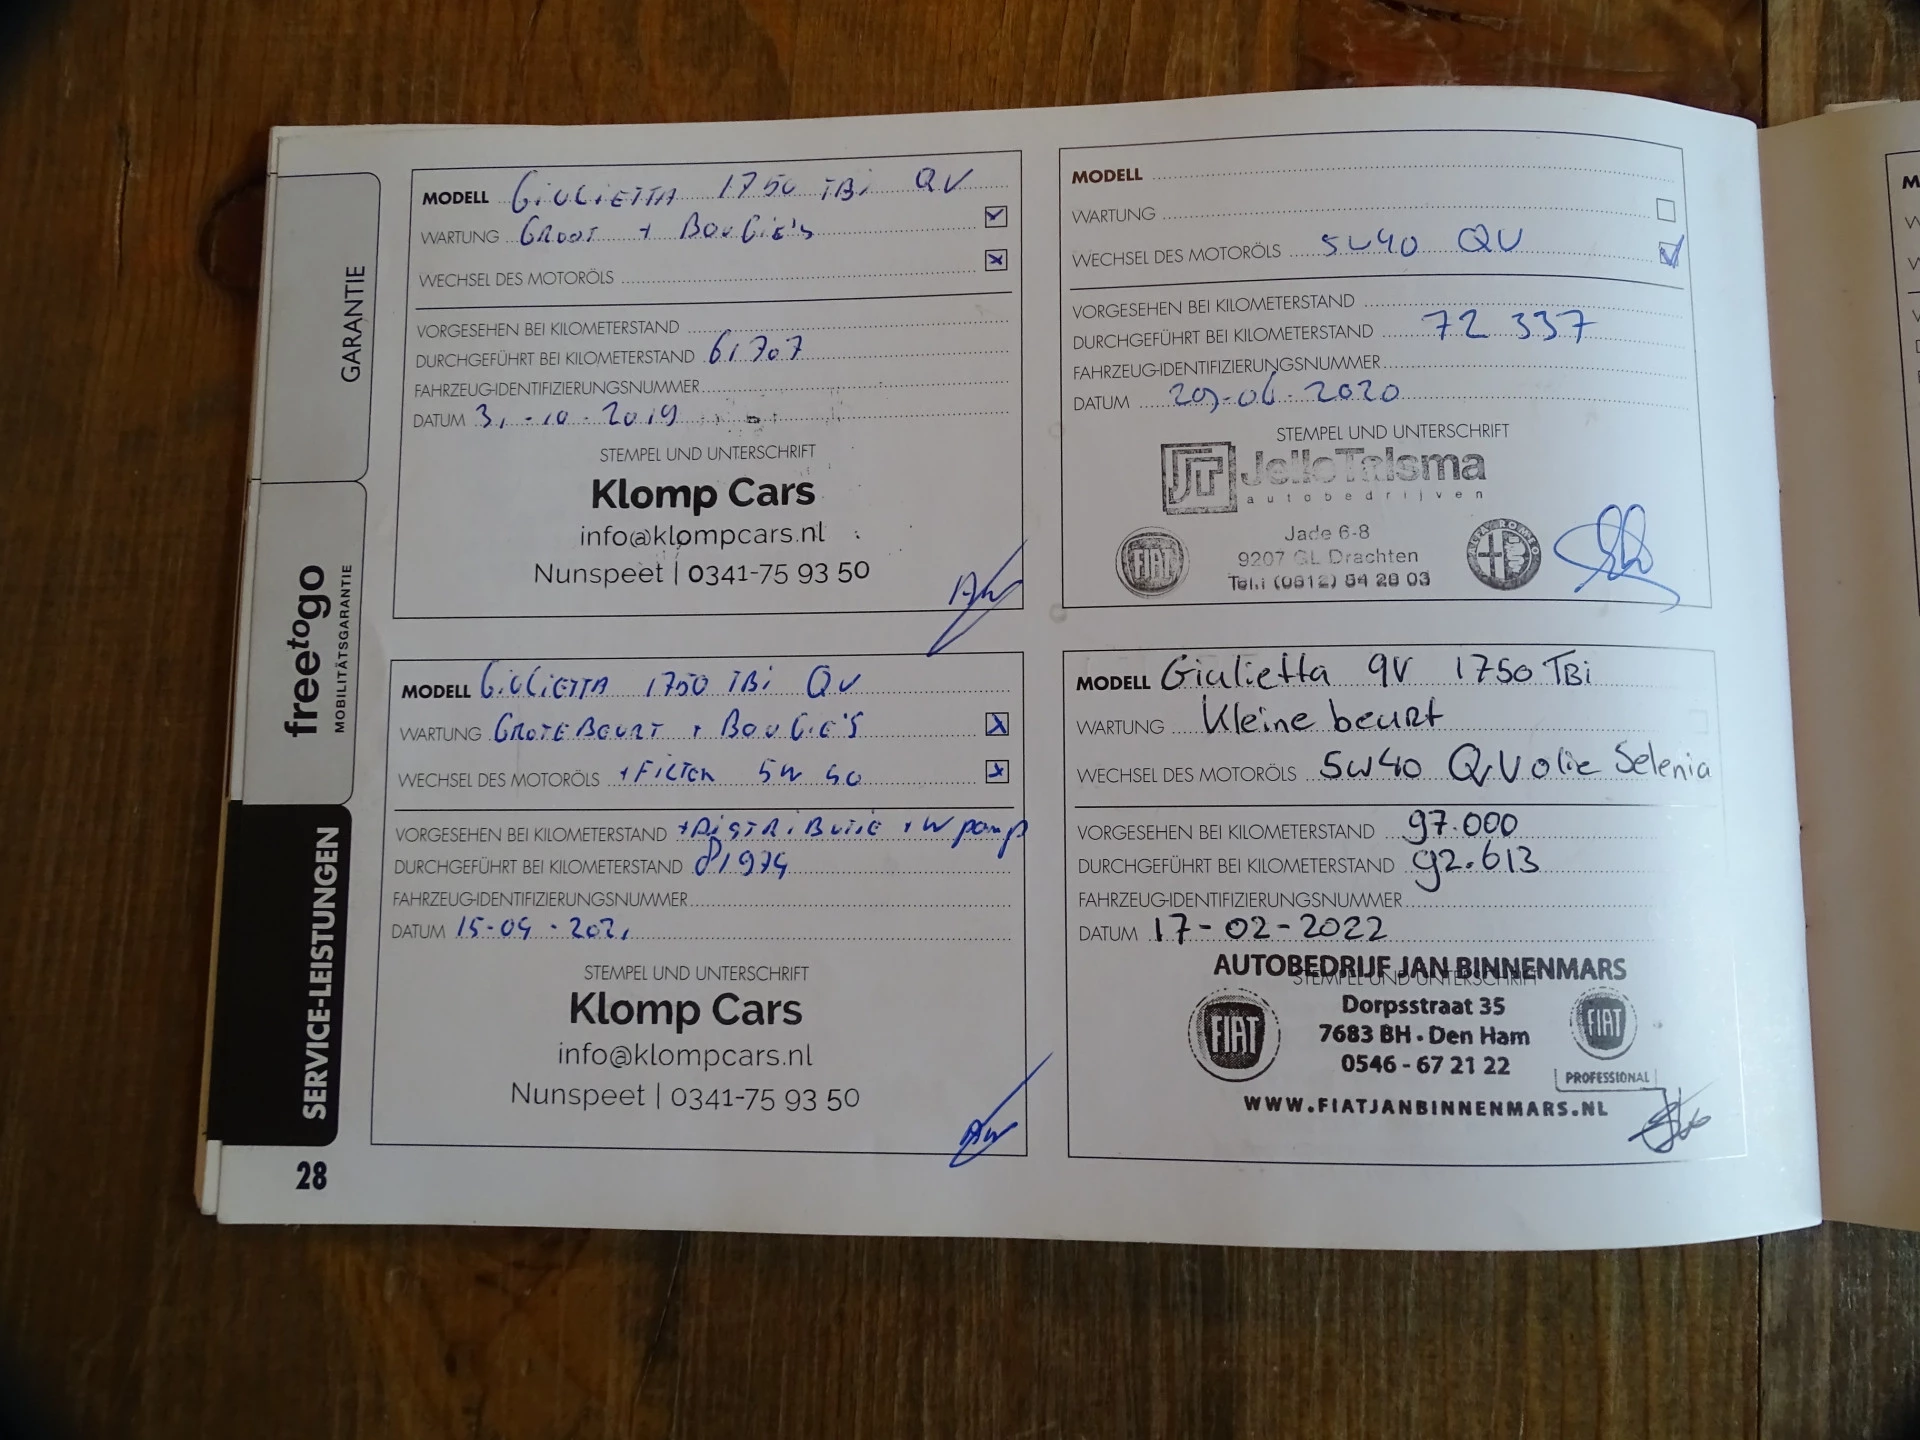 GARANTIE
freetogo
MOBILITÄTSGARANTIE
SERVICE-LEISTUNGEN
28
MODELL GiULiETTA 1750 TBi QV
WARTUNG GROOT + BOUGIE'S
WECHSEL DES MOTORÖLS
VORGESEHEN BEI KILOMETERSTAND
DURCHGEFÜHRT BEI KILOMETERSTAND 61707
FAHRZEUG-IDENTIFIZIERUNGSNUMMER
DATUM 31-10-2019
STEMPEL UND UNTERSCHRIFT
Klomp Cars
info@klompcars.nl
Nunspeet | 0341-75 93 50
MODELL
WARTUNG
WECHSEL DES MOTORÖLS 5W40 QV
VORGESEHEN BEI KILOMETERSTAND
DURCHGEFÜHRT BEI KILOMETERSTAND 72 337
FAHRZEUG-IDENTIFIZIERUNGSNUMMER
DATUM -06-2020
STEMPEL UND UNTERSCHRIFT
JT JelleTalsma
autobedrijven
Jade 6-8
FIAT
9207 GL Drachten
ALFA ROMEO
Tel.: (0512) 54 28 03
MODELL GiULiETTA 1750 TBi QV
WARTUNG GROTE BEURT + BOUGIE'S
WECHSEL DES MOTORÖLS +FILTER 5W40
VORGESEHEN BEI KILOMETERSTAND +DISTRIBUTIE + W pomp
DURCHGEFÜHRT BEI KILOMETERSTAND 81974
FAHRZEUG-IDENTIFIZIERUNGSNUMMER
DATUM 15-04-2021
STEMPEL UND UNTERSCHRIFT
Klomp Cars
info@klompcars.nl
Nunspeet | 0341-75 93 50
MODELL Giulietta QV 1750 TBi
WARTUNG Kleine beurt
WECHSEL DES MOTORÖLS 5W40 QV olie Selenia
VORGESEHEN BEI KILOMETERSTAND 97.000
DURCHGEFÜHRT BEI KILOMETERSTAND 92.613
FAHRZEUG-IDENTIFIZIERUNGSNUMMER
DATUM 17-02-2022
AUTOBEDRIJF JAN BINNENMARS
STEMPEL UND UNTERSCHRIFT
Dorpsstraat 35
FIAT
7683 BH • Den Ham
FIAT
0546 - 67 21 22
PROFESSIONAL
WWW.FIATJANBINNENMARS.NL